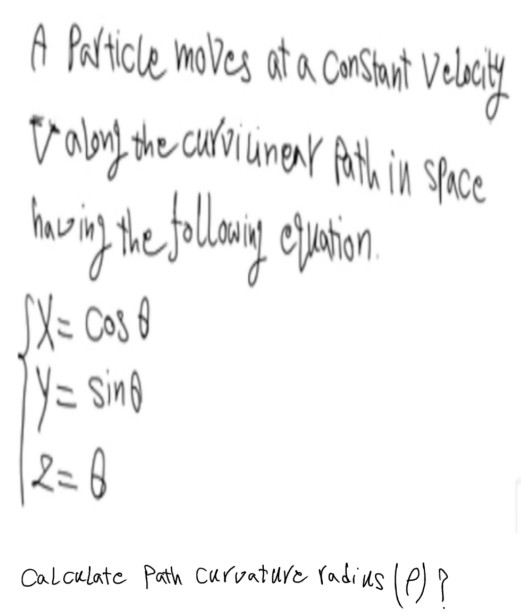 A Particle moves at a constant Velocity
V along the curvilinear Path in space
having the following equation.
X = cos θ
y = sin θ
z = θ
Calculate Path curvature radius (ρ) ?